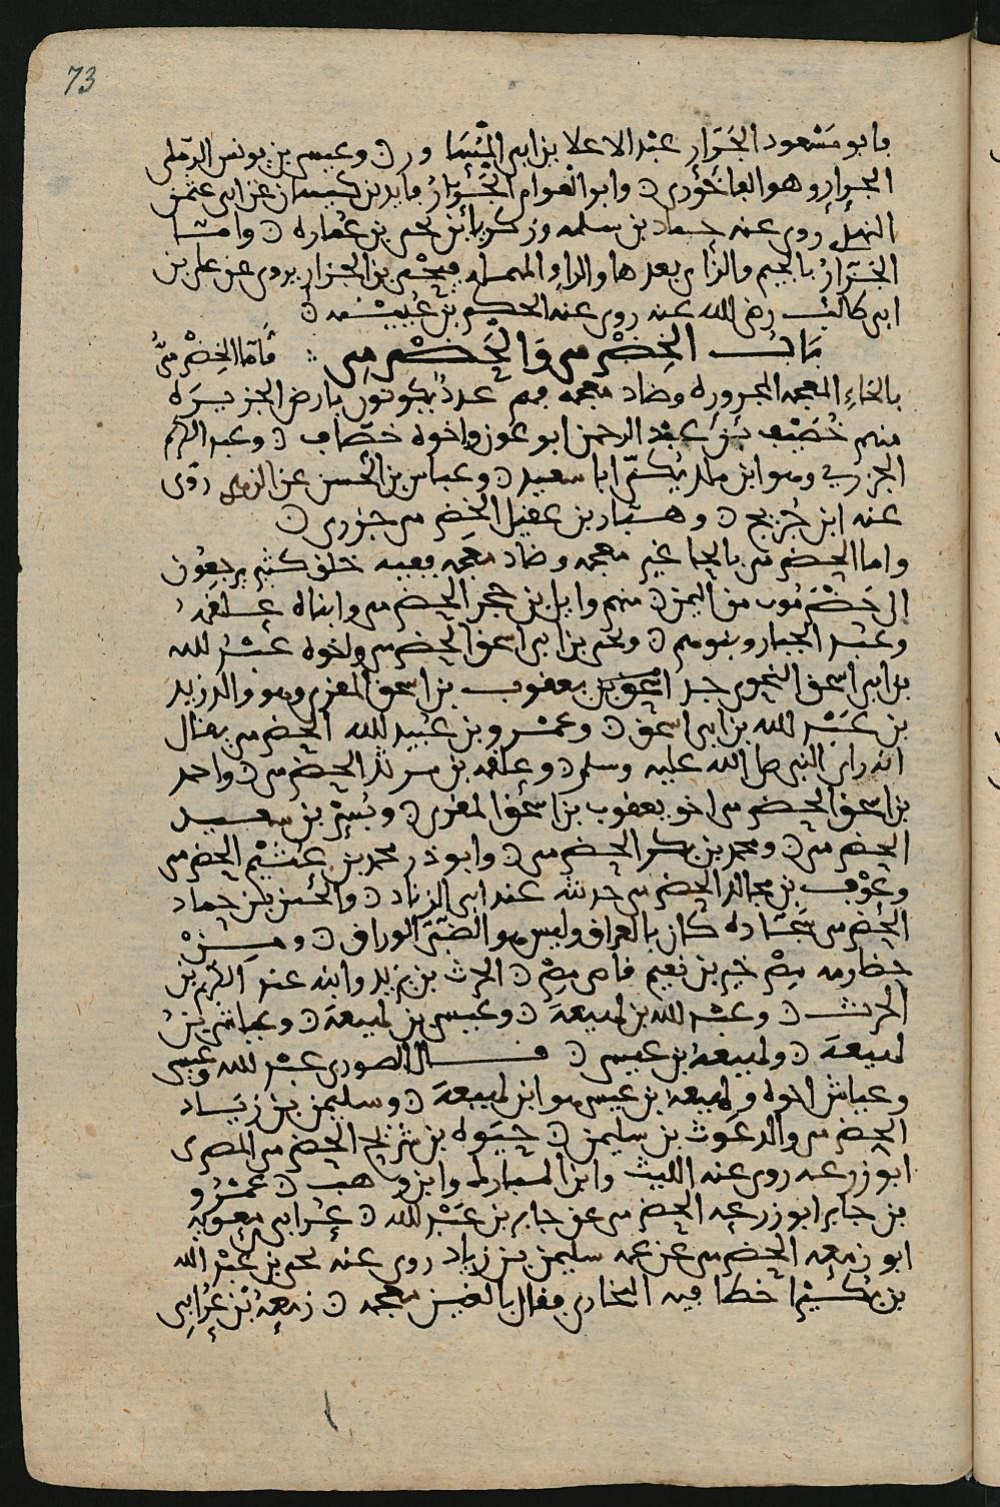 73
فابو مسعود الجرار عبد الاعلا بن ابي المساور ۞ وعيسى بن يونس الرملي
وهو الفاخوري ۞ وابو العوام الجزار فايد بن كيسان عن ابي عثمن
النهدي روى عنه حماد بن سلمه وزكريا بن يحيى بن عماره ۞ واما
الجزار بالجيم والزاي بعدها والراء المهمله فيحيى بن الجزار يروي عن علي بن
ابي طالب رضي الله عنه روى عنه الحكم بن عتيبه ۞
باب الخضرمي والحضرمي فاما الخضرمي
بالخاء المعجمه المجروره وضاد معجمه فهم عدد يكونون بارض الجزيره
منهم خصيف بن عبد الرحمن ابو عون واخوه خصاف ۞ وعبد الكريم
الجزري وهو ابن ملك يكنى ابا سعيد ۞ وعباس بن الحسن عن الزهري روى
عنه ابن جريج ۞ وهسيار بن عقيل الخضرمي جزري ۞
واما الحضرمي بالحا غير معجمه وضاد معجمه ففيه خلق كثير يرجعون
الى حضرموت من اليمن ۞ منهم وايل بن حجر الحضرمي وابناه علقمه
وعبد الجبار وبنوهم ۞ ويحيى بن ابي اسحق الحضرمي واخوه عبد الله
بن ابي اسحق النحوي جد يعقوب بن اسحق المقري وهو والد زيد
بن عبد الله بن ابي اسحق ۞ وعمرو بن عبيد الله الحضرمي يقال
انه راى النبي صلى الله عليه وسلم ۞ وعلقمه بن مرثد الحضرمي ۞ واحمد
بن اسحق الحضرمي اخو يعقوب بن اسحق المقري ۞ وبسر بن سعيد
الحضرمي ۞ ومحمد بن بكر الحضرمي ۞ وابو ذر محمد بن عثيم الحضرمي
وعوف بن مجالد الحضرمي حدث عنه ابو الزناد ۞ والحسن بن حماد
الحضرمي سجاده كان بالعراق وليس هو الضبي الوراق ۞ ومن
حضارمه مصر خير بن نعيم قاضي مصر ۞ الحرث بن يزيد وابنه عبد الكريم بن
الحرث ۞ وعبد الله بن لهيعة ۞ وعيسى بن لهيعة ۞ وعياش بن
لهيعة ۞ ولهيعة بن عيسى ۞ قال الصوري عبد الله وعيسى
وعياش اخوه ولهيعه بن عيسى هو ابن لهيعة ۞ وسليمن بن زياد
الحضرمي والد غوث بن سليمن ۞ حيوه بن شريح الحضرمي المصري
ابو زرعه روى عنه الليث وابن المبارك وابن وهب ۞ عمرو
بن جابر ابو زرعه الحضرمي عن جابر بن عبد الله ۞ عرابي بن معويه
ابو زمعه الحضرمي عن عمه سليمن بن زياد روى عنه يحيى بن عبد الله
بن بكير اخطا فيه البخاري فقال بالغين معجمه ۞ زمعه بن عرابي